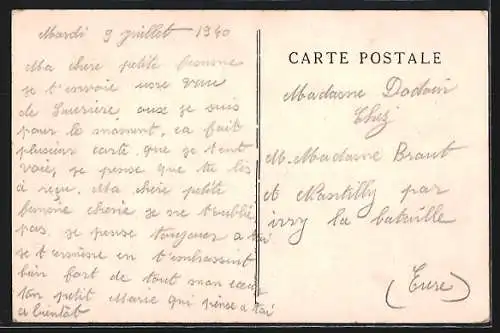 Mardi 9 juillet 1940
Ma chere petite femme
je t'envoie une vue
de Lauriere ou je suis
pour le moment, ca fait
plusieur carte que je t'en
voie, je pense que tu les
a reçu. Ma cheri petite
femme cherie je ne t'oublie
pas, je pense toujours a toi
je t'ermine en t'embrassent
bien fort de tout mon cœur
ton petit Marie qui pense a toi
a bientôt
CARTE POSTALE
Madame Dodoin
Chez
M. Madame Braut
et Nantilly par
ivry la bataille
(Eure)